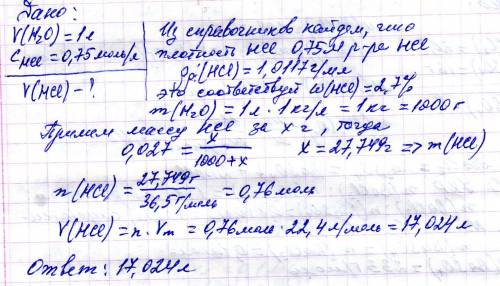 Дано:
V(H₂O) = 1 л
C HCl = 0,75 моль/л
V(HCl) - ?
Из справочников найдем, что
плотность HCl 0,75М р-ра HCl
ρ (HCl) = 1,0117 г/мл
это соответствует ω(HCl) = 2,7%
m(H₂O) = 1 л · 1 кг/л = 1 кг = 1000 г
Примем массу HCl за x г, тогда
0,027 = x / 1000 + x    x = 27,749 г => m(HCl)
n(HCl) = 27,749 г / 36,5 г/моль = 0,76 моль
V(HCl) = n · Vm = 0,76 моль · 22,4 л/моль = 17,024 л
Ответ: 17,024 л